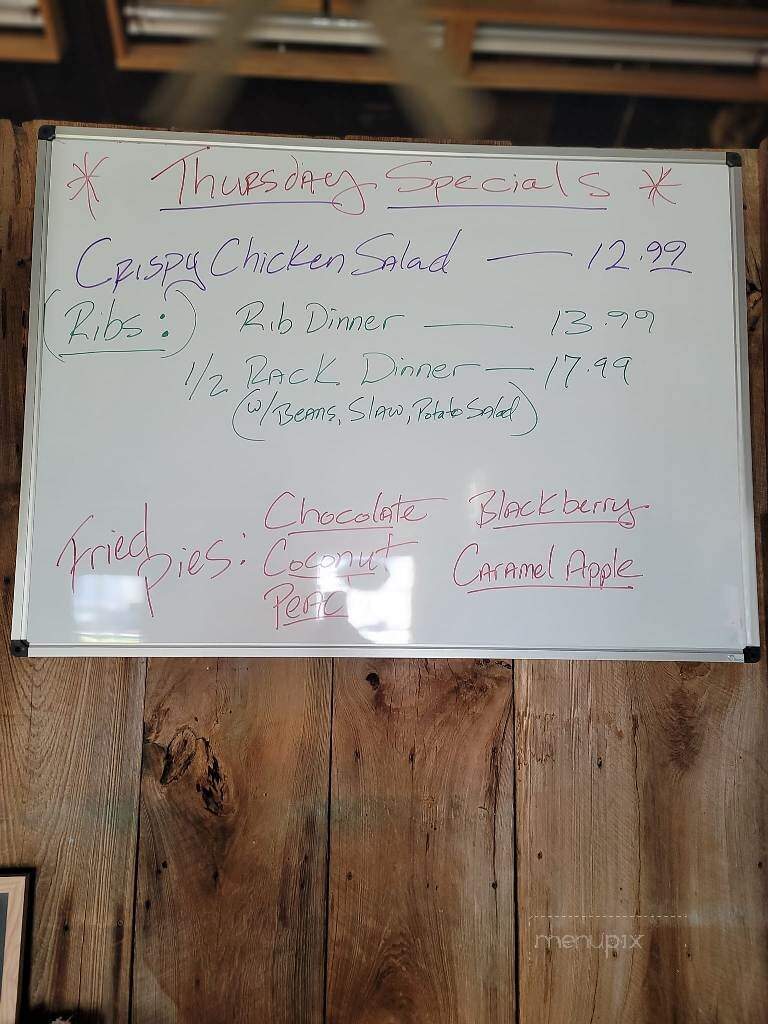 * Thursday Specials *
Crispy Chicken Salad — 12.99
(Ribs:) Rib Dinner — 13.99
1/2 Rack Dinner — 17.99
(w/Beans, Slaw, Potato Salad)
Fried Pies: Chocolate Blackberry
Coconut Caramel Apple
menupix